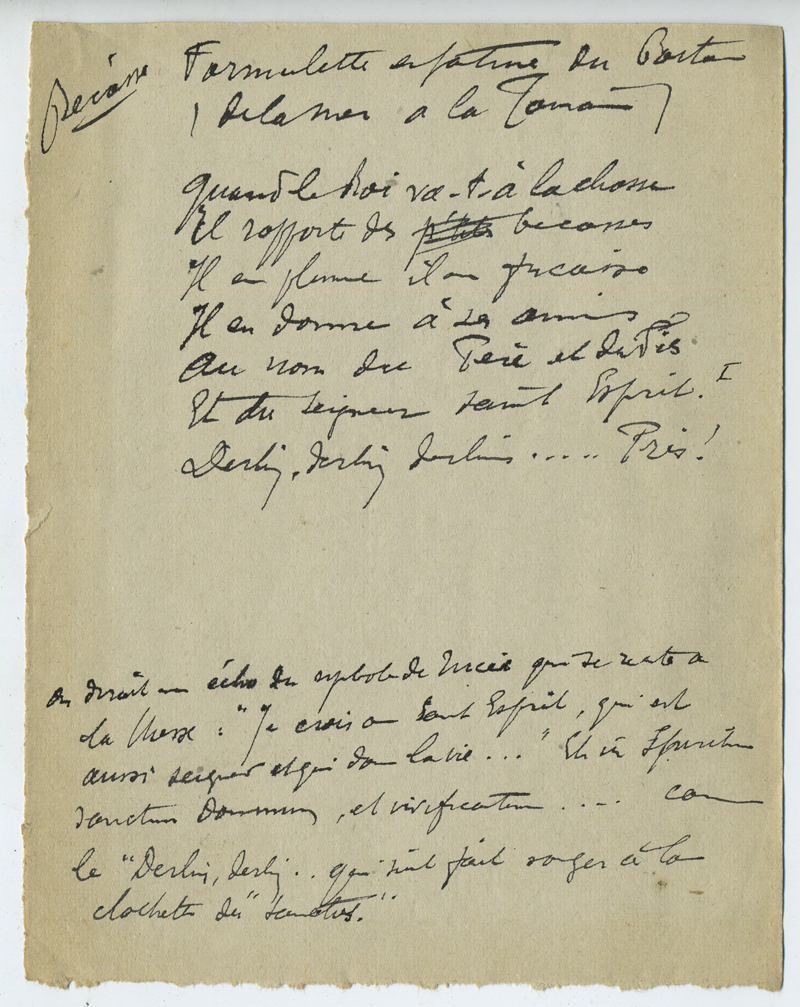 Becasse
Formulette enfantine du Poitou
(
Quand le Roi va-t-à la chasse
Il rapporte des p'tites becasses
Il en plume il en fricasse
Il en donne à ses amis
Au nom du Père et du Fis
Et du seigneur saint Esprit. I
Derlin, derlin derlin ..... Pris!
On dirait un écho du symbole de Nicée qui se récite à
la Messe : "Je crois au Saint Esprit, qui est
aussi seigneur et qui donne la vie ..." Et in Spiritum
sanctum Dominum, et vivificantem .... comme
le "Derlin, derlin .. qui suit fait songer à la
clochette du "Sanctus."